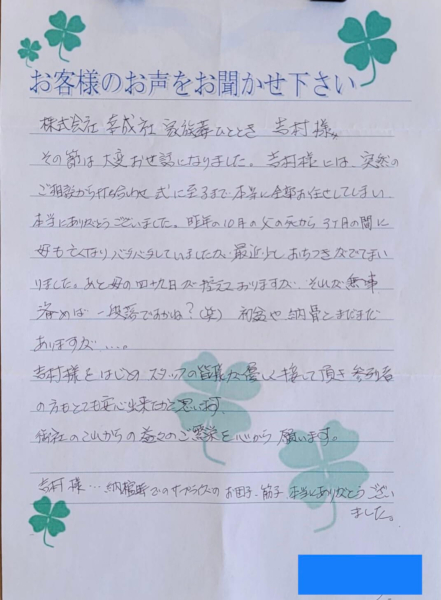 お客様のお声をお聞かせ下さい
株式会社 喜成社 家族葬ひととき 吉村様
その節は大変お世話になりました。吉村様には、突然の
ご相談から打ち合わせ 式に至るまで本当に全部お任せしてしまい
本当にありがとうございました。昨年の10月の父の死から3ヶ月の間に
母も亡くなりバタバタしていましたが、最近少しおちつきがでてまい
りました。あと母の四十九日が控えておりますが、それが無事
済めば一段落ですかね?(笑) 初盆や納骨とまだまだ
ありますが....。
吉村様をはじめ スタッフの皆様が優しく接して頂き 参列者
の方もとても安心出来たかと思います。
御社のこれからの益々のご繁栄を心から願います。
吉村様…納棺時でのサプライズの お団子、筋子、本当にありがとうござい
ました。